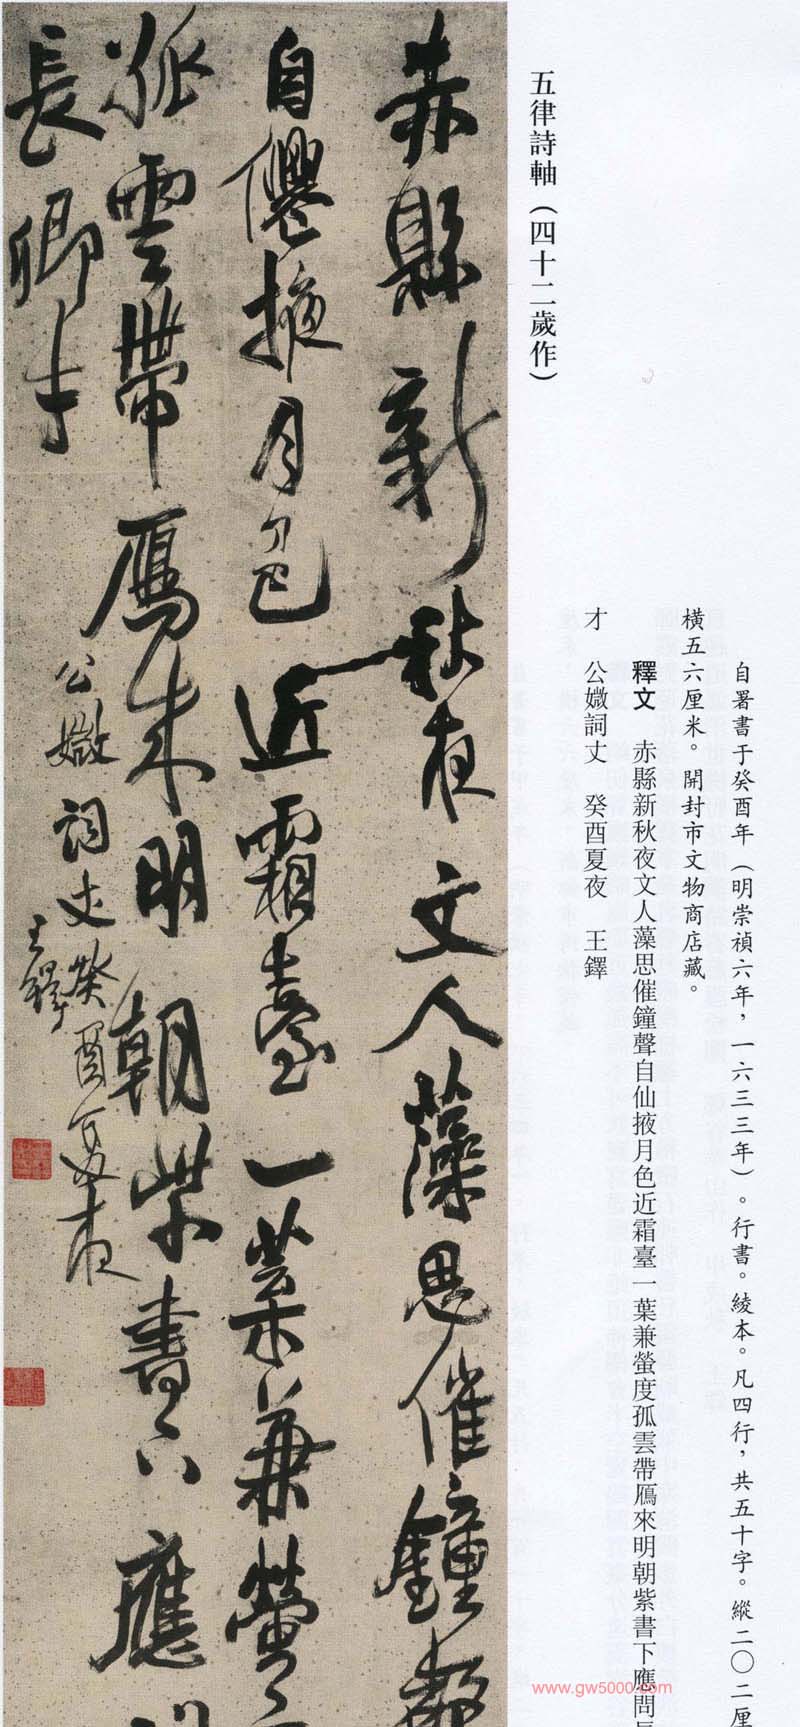 五律詩軸（四十二歲作）
自署書于癸酉年（明崇禎六年，一六三三年）。行書。綾本。凡四行，共五十字。縱二〇二厘
橫五六厘米。開封市文物商店藏。
釋文　赤縣新秋夜文人藻思催鐘聲自仙掖月色近霜臺一葉兼螢度孤雲帶鴈來明朝紫書下應問長
才　公媺詞丈　癸酉夏夜　王鐸
赤縣新秋夜文人藻思催鐘聲
自僊掖月色近霜臺一葉兼螢
孤雲帶鴈來明朝紫書下應
長卿才
公媺詞丈癸酉夏夜
王鐸
www.gw5000.com